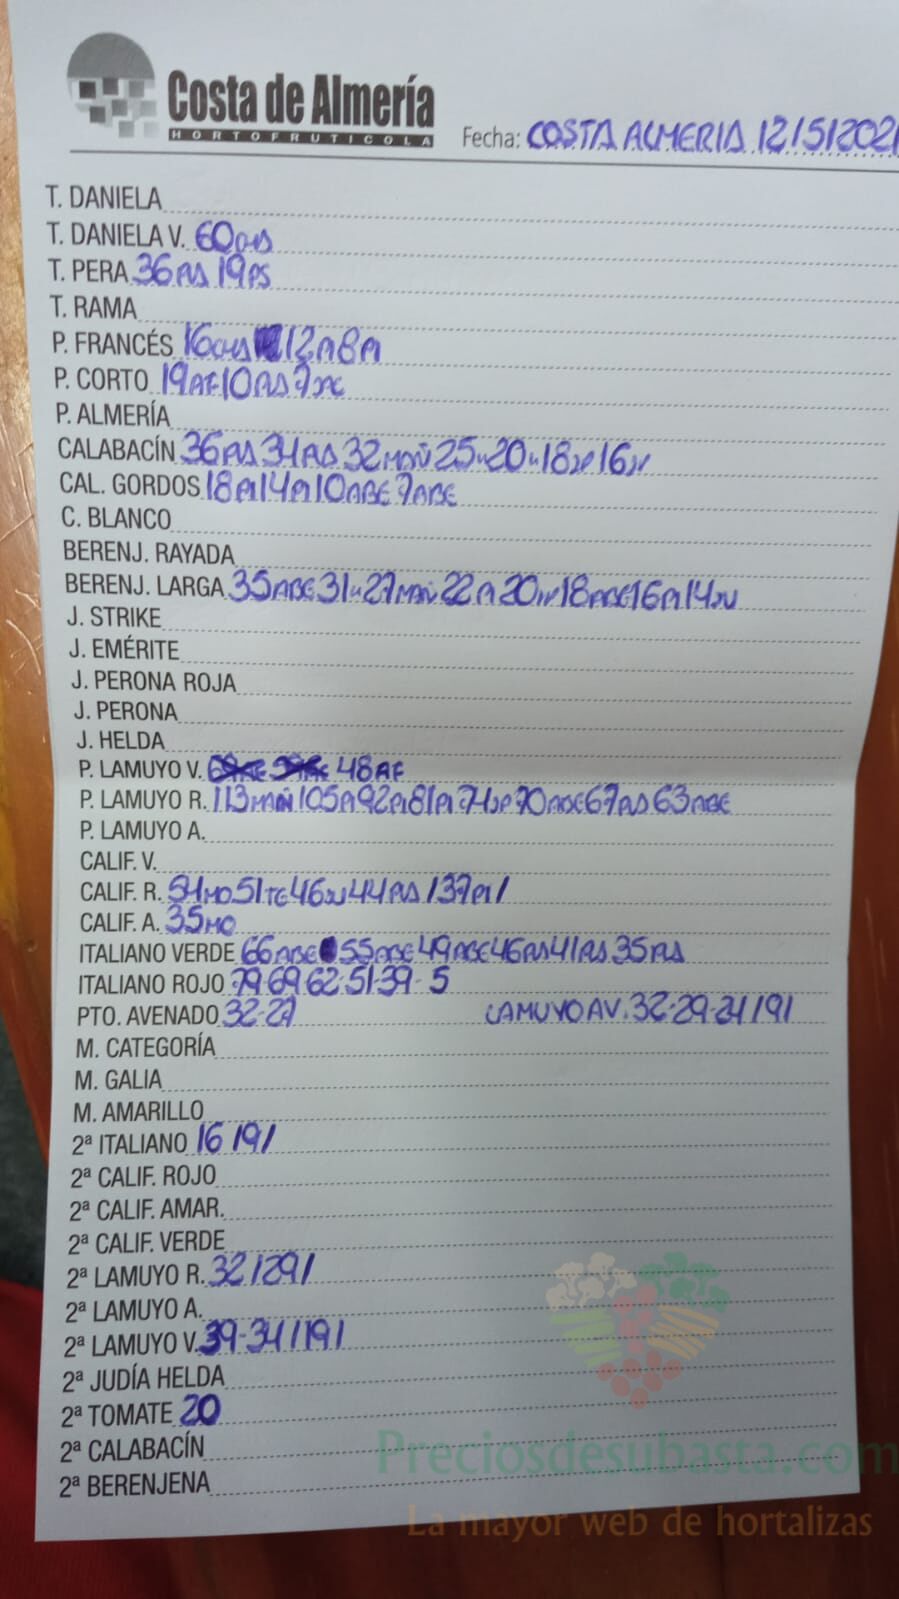 Costa de Almería
HORTOFRUTICOLA
Fecha: COSTA ALMERIA 12/5/2021
T. DANIELA
T. DANIELA V. 60
T. PERA 36 PLS 19 PS
T. RAMA
P. FRANCÉS 16 12 8
P. CORTO 19 AF 10 PLS 7
P. ALMERÍA
CALABACÍN 36 PLS 34 PLS 32 MAÑ 25 20 18 16
CAL. GORDOS 18 PI 14 PI 10 ABE 7 ABE
C. BLANCO
BERENJ. RAYADA
BERENJ. LARGA 35 ABE 31 27 MAÑ 22 PI 20 18 ABE 16 PI 14
J. STRIKE
J. EMÉRITE
J. PERONA ROJA
J. PERONA
J. HELDA
P. LAMUYO V. 48 AF
P. LAMUYO R. 113 MAÑ 105 PI 92 PI 81 PI 74 70 ABE 67 PLS 63 ABE
P. LAMUYO A.
CALIF. V.
CALIF. R. 54 MO 51 TE 46 44 PLS /37 PI /
CALIF. A. 35 MO
ITALIANO VERDE 66 ABE 55 ABE 49 ABE 46 PLS 41 PLS 35 PLS
ITALIANO ROJO 79-69-62-51-39-5
PTO. AVENADO 32-27 LAMUYO AV. 32-29-24/19/
M. CATEGORÍA
M. GALIA
M. AMARILLO
2ª ITALIANO 16 /9/
2ª CALIF. ROJO
2ª CALIF. AMAR.
2ª CALIF. VERDE
2ª LAMUYO R. 32/29/
2ª LAMUYO A.
2ª LAMUYO V. 39-34/19/
2ª JUDÍA HELDA
2ª TOMATE 20
2ª CALABACÍN
2ª BERENJENA
Preciosdesubasta.com
La mayor web de hortalizas